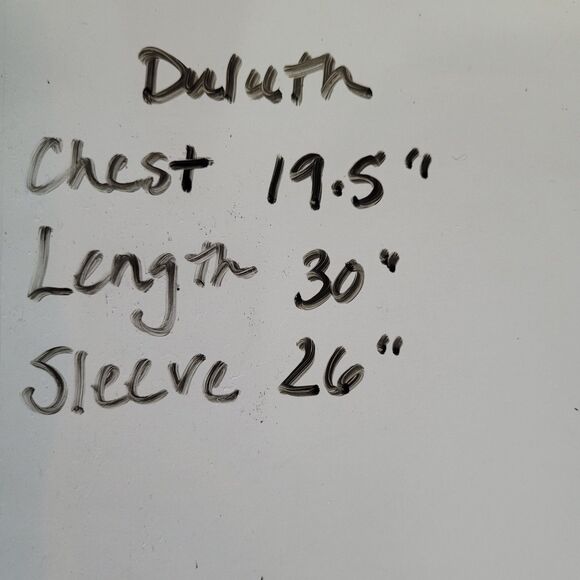 Duluth
Chest 19.5"
Length 30"
Sleeve 26"